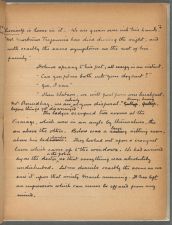 himself is loose in it. We are given over into his hands!
Mr Mortimer Tregennis has died during the night, and
with exactly the same symptoms as the rest of his
family."
Holmes sprang to his feet, all energy in an instant.
"Can you fit us both into your dogcart?"
"Yes, I can."
"Then Watson, we will postpone our breakfast.
Mr Roundhay, we are entirely at your disposal. Hurry, hurry,
before things get disarranged."
The lodger occupied two rooms at the
vicarage, which were in an angle by themselves, the
one above the other. Below was a large sitting room,
above his bedroom. They looked out upon a croquet
lawn which came up to the windows. We had arrived
before the doctor or the police so that everything was absolutely
undisturbed. Let me describe exactly the scene as we
saw it upon that misty March morning. It has left
an impression which can never be effaced from my
mind.